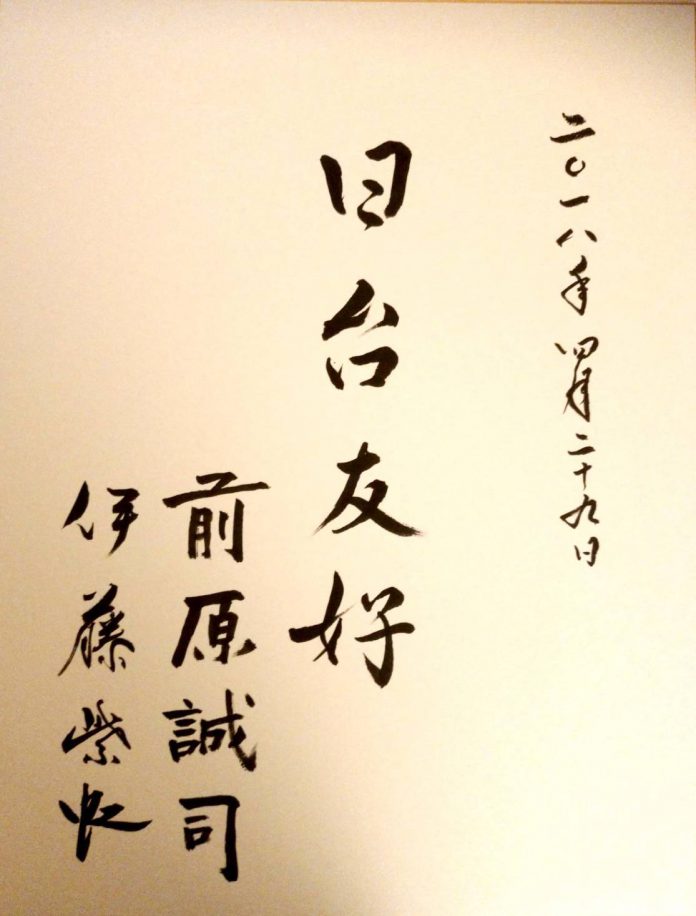 二〇一八年四月二十九日
日台友好
前原誠司
伊藤紫虹